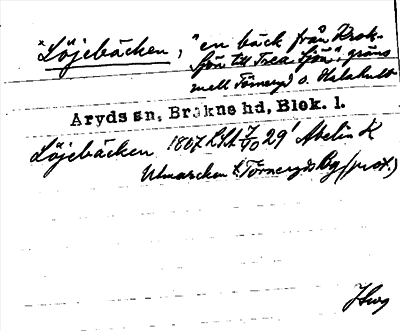 * Löjebäcken, "en bäck från Krok-
sjön till Trea sjön"; gräns
mell Törneryd o. Halahult
Aryds sn, Bräkne hd, Blek. l.
Löjebäcken 1807 LSA 29' Abelin K
Utmarken t. Törneryds By (prot.)